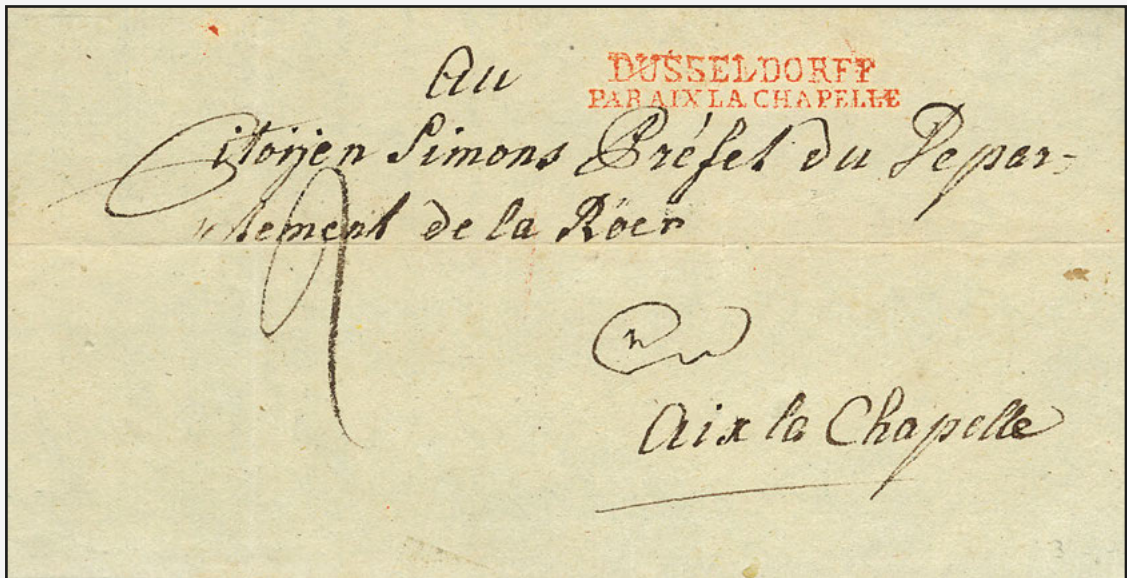 DUSSELDORFF
PAR AIX LA CHAPELLE
Au
Citoÿen Simons Préfet du Depar-
tement de la Röer
9
Aix la Chapelle
3